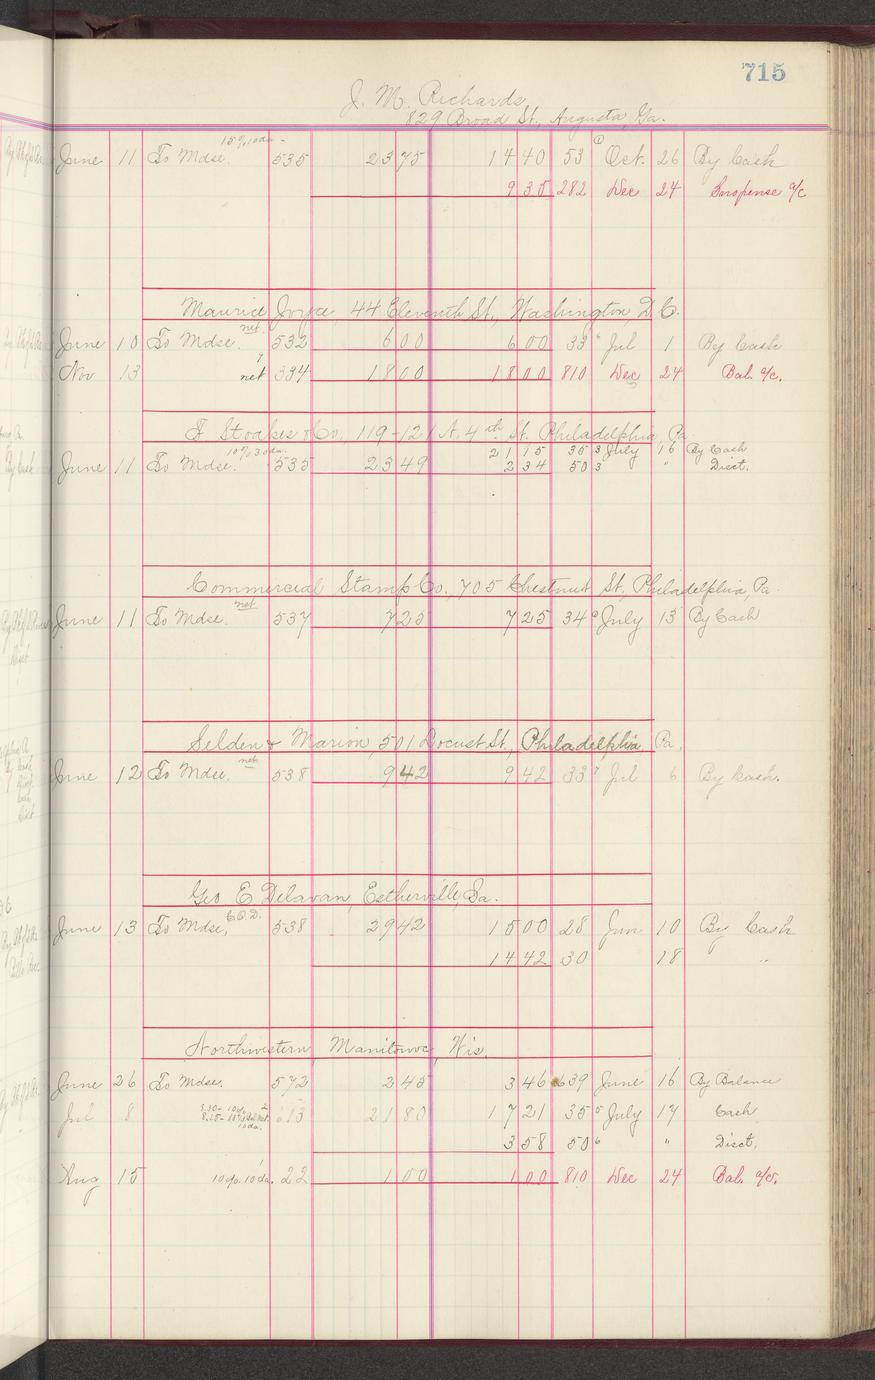 715
J. M. Richards,
829 Broad St., Augusta, Ga.
June 11 To Mdse. 15% 10 da 535 23 75 14 40 53 Oct. 26 By Cash
9 35 282 Dec 24 Suspense a/c
Maurice Joyce, 44 Eleventh St., Washington, D.C.
June 10 To Mdse. net 532 6 00 6 00 33 Jul 1 By Cash
Nov 13 net 334 18 00 18 00 810 Dec 24 Bal. a/c.
F Stoakes & Co., 119-121 N. 4th St. Philadelphia, Pa
June 11 To Mdse. 10% 30 da. 535 23 49 21 15 35 3 July 16 By Cash
2 34 50 3 " Disct.
Commercial Stamp Co., 705 Chestnut St., Philadelphia, Pa.
June 11 To Mdse. net 537 7 25 7 25 34 July 13 By Cash
Selden & Marion, 501 Locust St., Philadelphia Pa.
June 12 To Mdse. net 538 9 42 9 42 33 7 Jul 6 By Cash.
Geo E Delavan, Estherville, Ia.
June 13 To Mdse, C.O.D. 538 29 42 15 00 28 Jun 10 By Cash
14 42 30 18 "
Northwestern Manitowoc, Wis,
June 26 To Mdse. 572 2 45 3 46 639 June 16 By Balance
Jul 8 613 21 80 17 21 35 5 July 17 Cash
3 58 50 6 " Disct,
Aug 15 10% 10 da. 22 1 00 1 00 810 Dec 24 Bal. a/c.